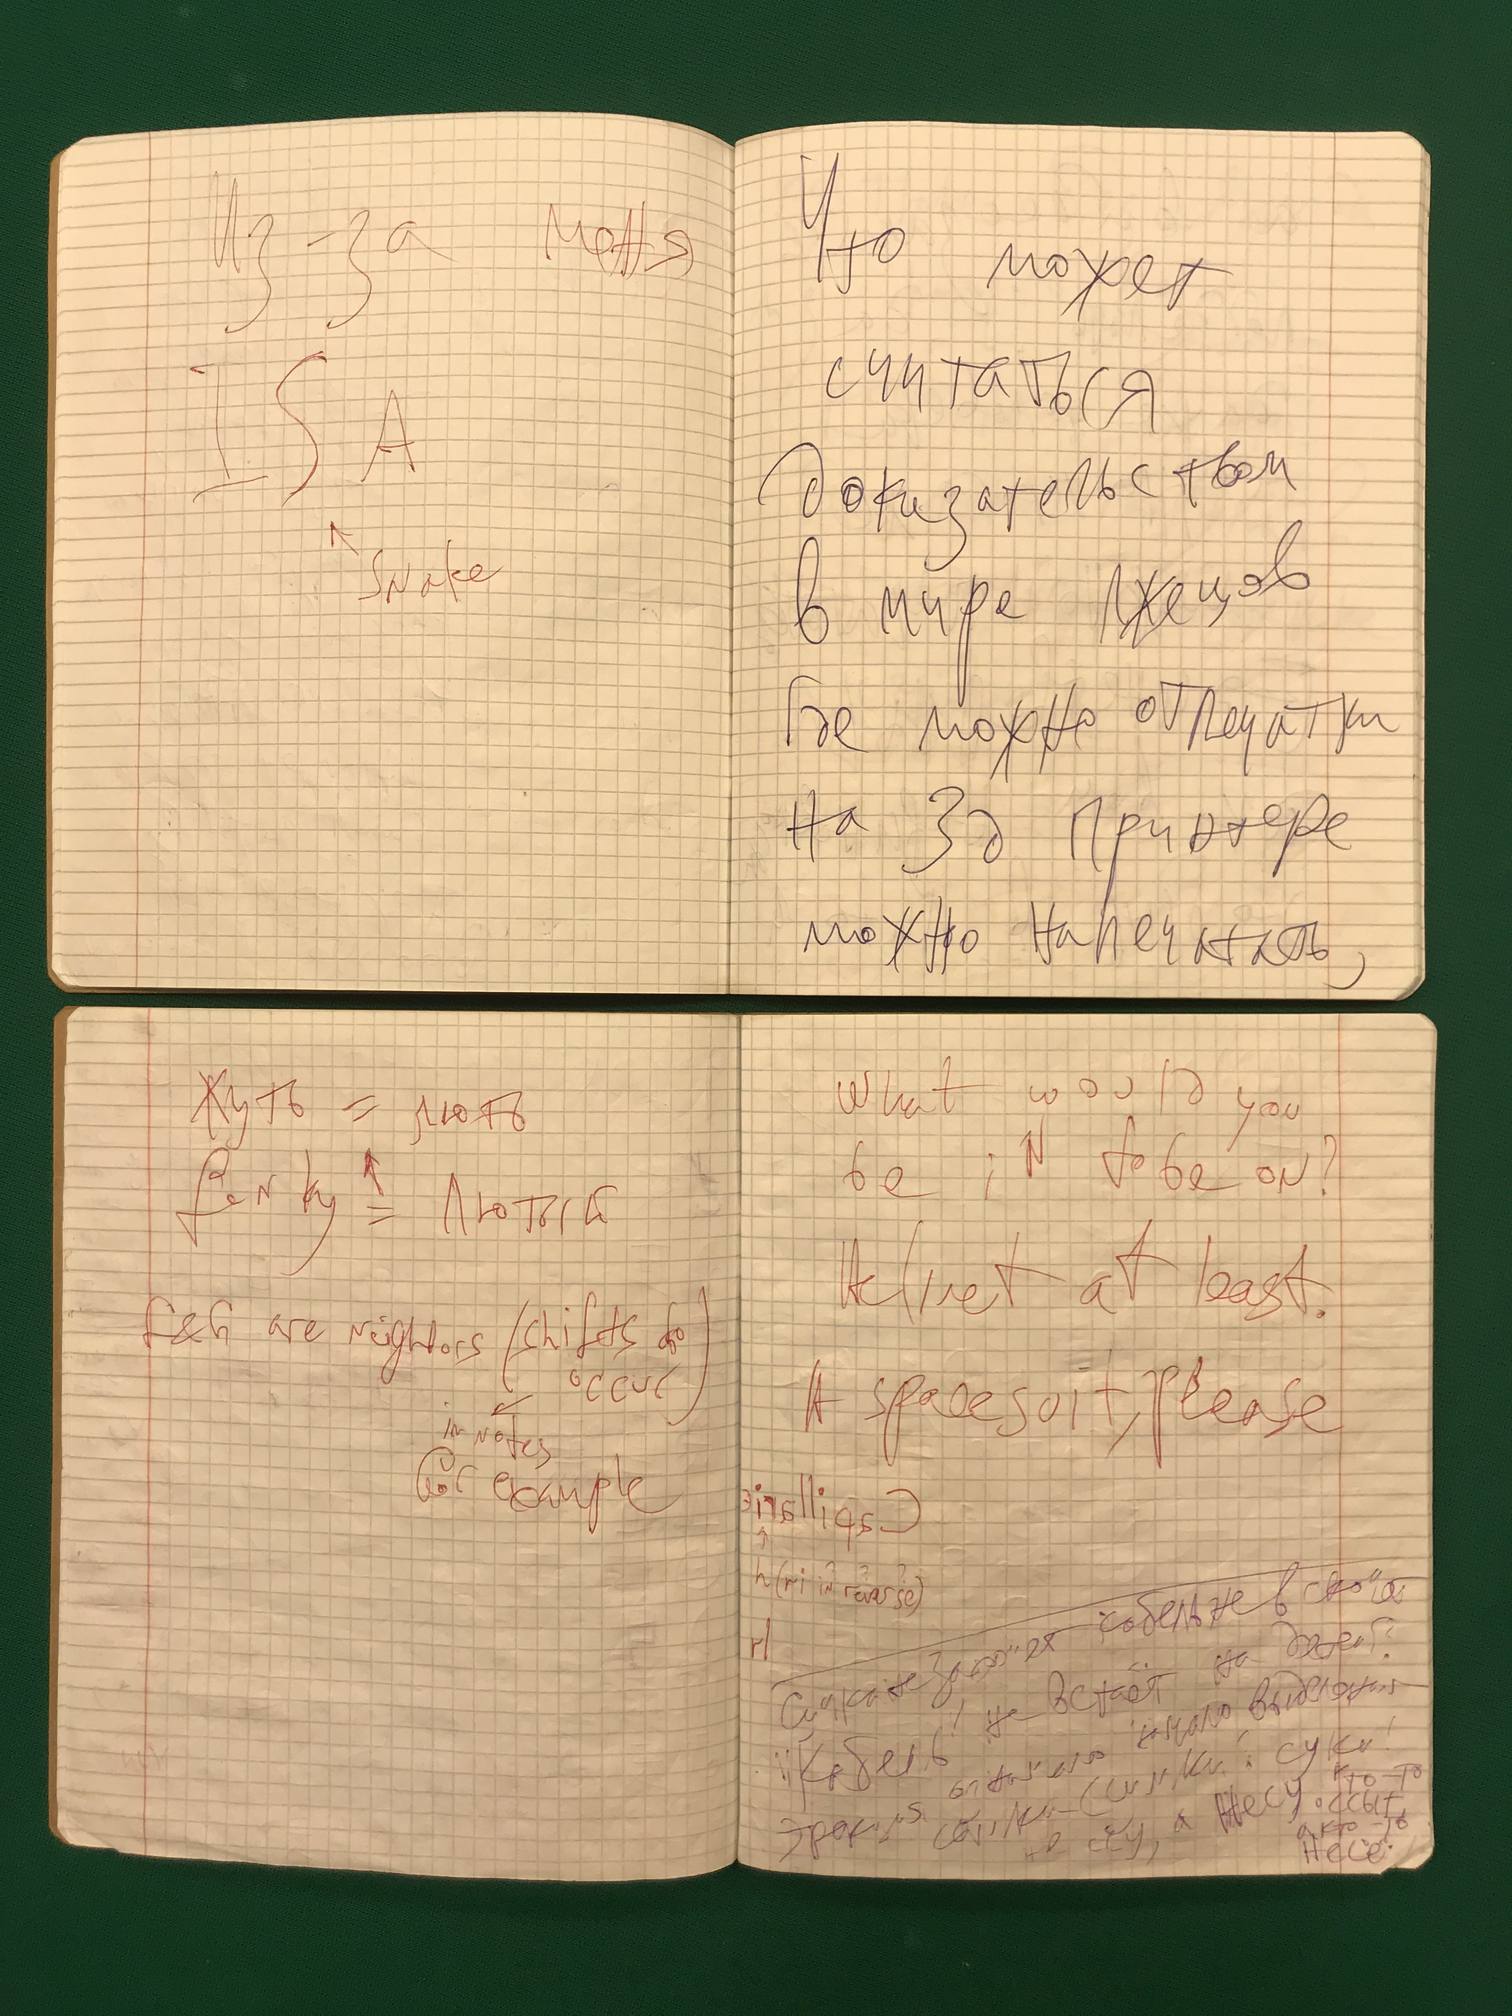 Из-за меня
ISA
Snake
Что может
считаться
доказательством
в мире лжецов
Где можно отпечатки
на 3д принтере
можно напечатать,
Жуть = лють
fenky = лютый
f&G are neighbors (shifts do
occur)
in notes
for example
What would you
be in to be on?
Helmet at least.
A spacesuit, please
Capillarie
h (ri in reverse)
не в
"Кобель! не встаёт на
начало
суки!
а несу. кто-то
ссыт
а кто-то
несё